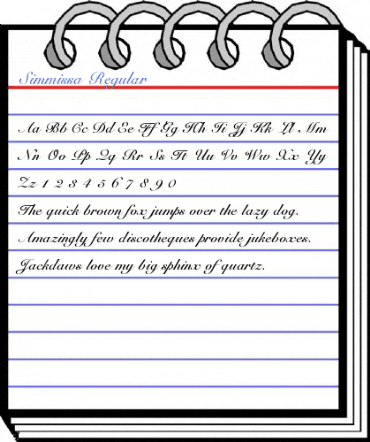 Simmissa Regular
Aa Bb Cc Dd Ee Ff Gg Hh Ii Jj Kk Ll Mm
Nn Oo Pp Qq Rr Ss Tt Uu Vv Ww Xx Yy
Zz 1 2 3 4 5 6 7 8 9 0
The quick brown fox jumps over the lazy dog.
Amazingly few discotheques provide jukeboxes.
Jackdaws love my big sphinx of quartz.